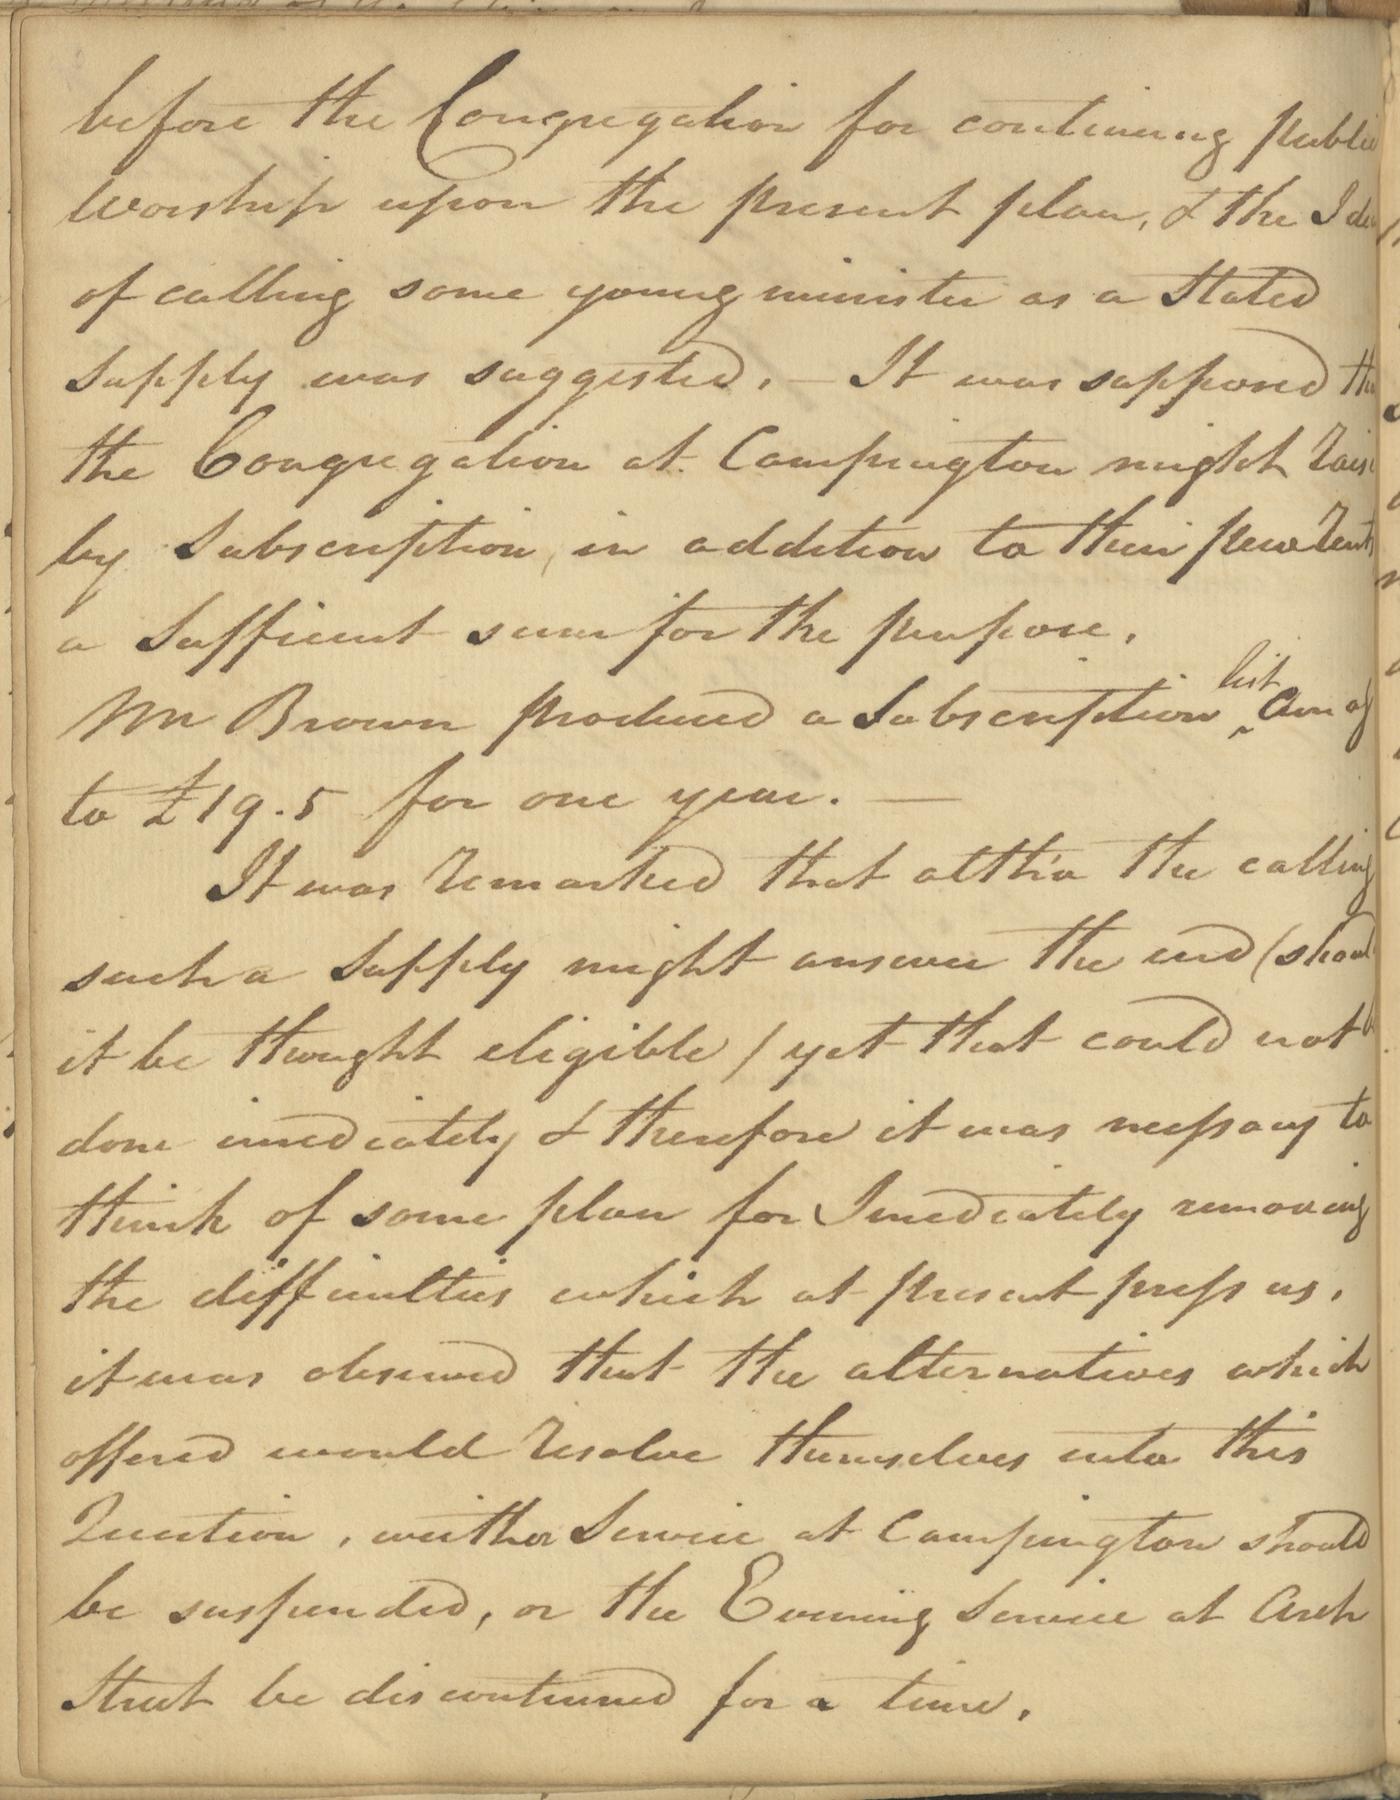 before the Congregation for continuing public
Worship upon the present plan, & the Idea
of calling some young minister as a Stated
Supply was suggested. — It was supposed
the Congregation at Campington might Raise
by Subscription, in addition to their pew Rents
a Sufficient sum for the purpose.
Mr Brown produced a Subscription list
to £19.5 for one year. —
It was Remarked that altho the calling
such a Supply might answer the end (should
it be thought eligible) yet that could not
done imediately & therefore it was nessary to
think of some plan for Imediately removing
the difficulties which at present press us.
it was observed that the alternatives which
offered would Resolve themselves into this
Question, weither Service at Campington should
be suspended, or the Evening Service at Arch
Street be discontinued for a time.